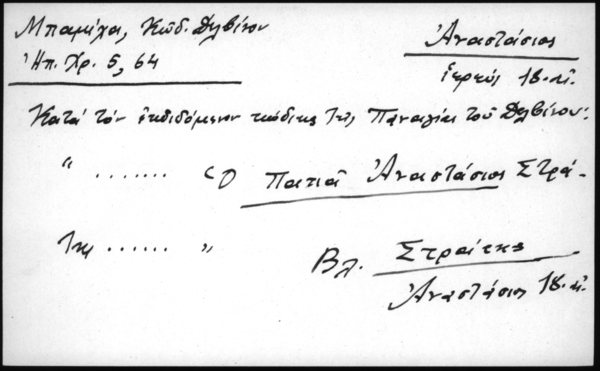 Μπαμίχα, Κώδ. Δελβίνου
Ἠπ. Χρ. 5, 64
Ἀναστάσιος
ἱερεύς 18. αἰ.
Κατά τόν ἐκδιδόμενον κώδικα τῆς Παναγίας τοῦ Δελβίνου:
" ....... Ὁ Παπᾶ Ἀναστάσιος Στρά-
της ...... "
Βλ. Στράτης
Ἀναστάσιος 18. αἰ.